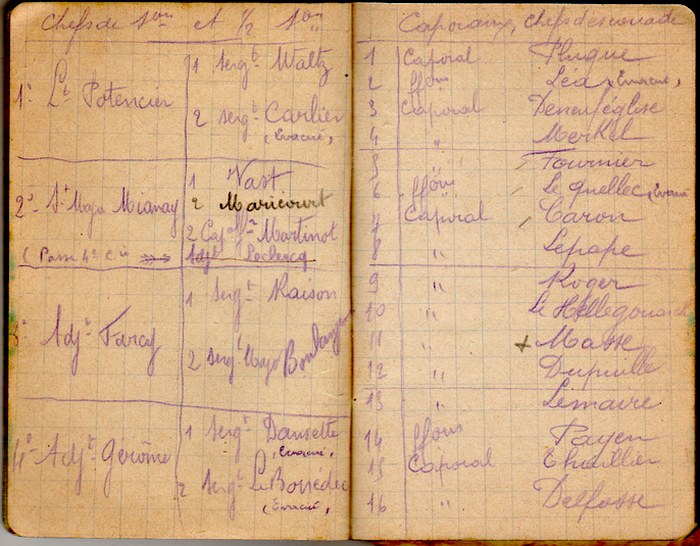 Chefs de Son et 1/2 Son
1° Lt Potencier
1 Sergt Waltz
2 Sergt Carlier
(Evacué)
2° St Major Mianay
1 Vast
2 Maricourt
2 Cap ffon Martinot
(Passé 4e Cie
Adjt Leclercq
3° Adjt Farcy
1 Sergt Raison
2 Sergt Major Boulanger
4° Adjt Gerôme
1 Sergt Dansette
(Evacué,
2 Sergt Le Bossédec
(Evacué,
Caporaux, Chefs d'escouade
1 Caporal Plugue
2 ffons Lea (Evacué,
3 Caporal Deneuféglise
4 " Merkel
5 " Tournier
6 ffons Le Quellec, Evacué
7 Caporal Caron
8 " Lepape
9 " Roger
10 " Le Hellegouarch
11 " + Masse
12 " Dupuille
13 " Lemaire
14 ffons Payen
15 Caporal Thuillier
16 " Delfosse